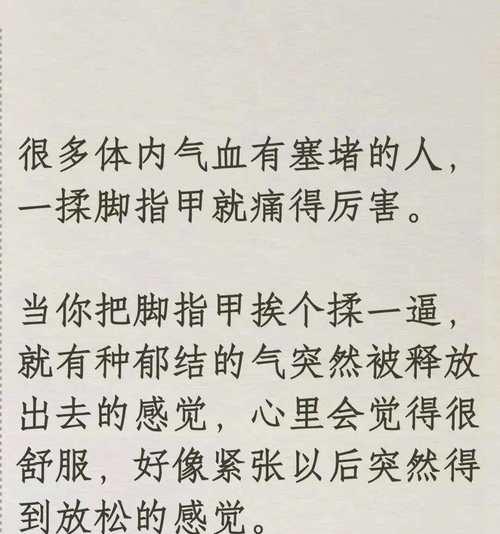 很多体内气血有塞堵的人，
一揉脚指甲就痛得厉害。
当你把脚指甲挨个揉一逼，
就有种郁结的气突然被释放
出去的感觉，心里会觉得很
舒服，好像紧张以后突然得
到放松的感觉。